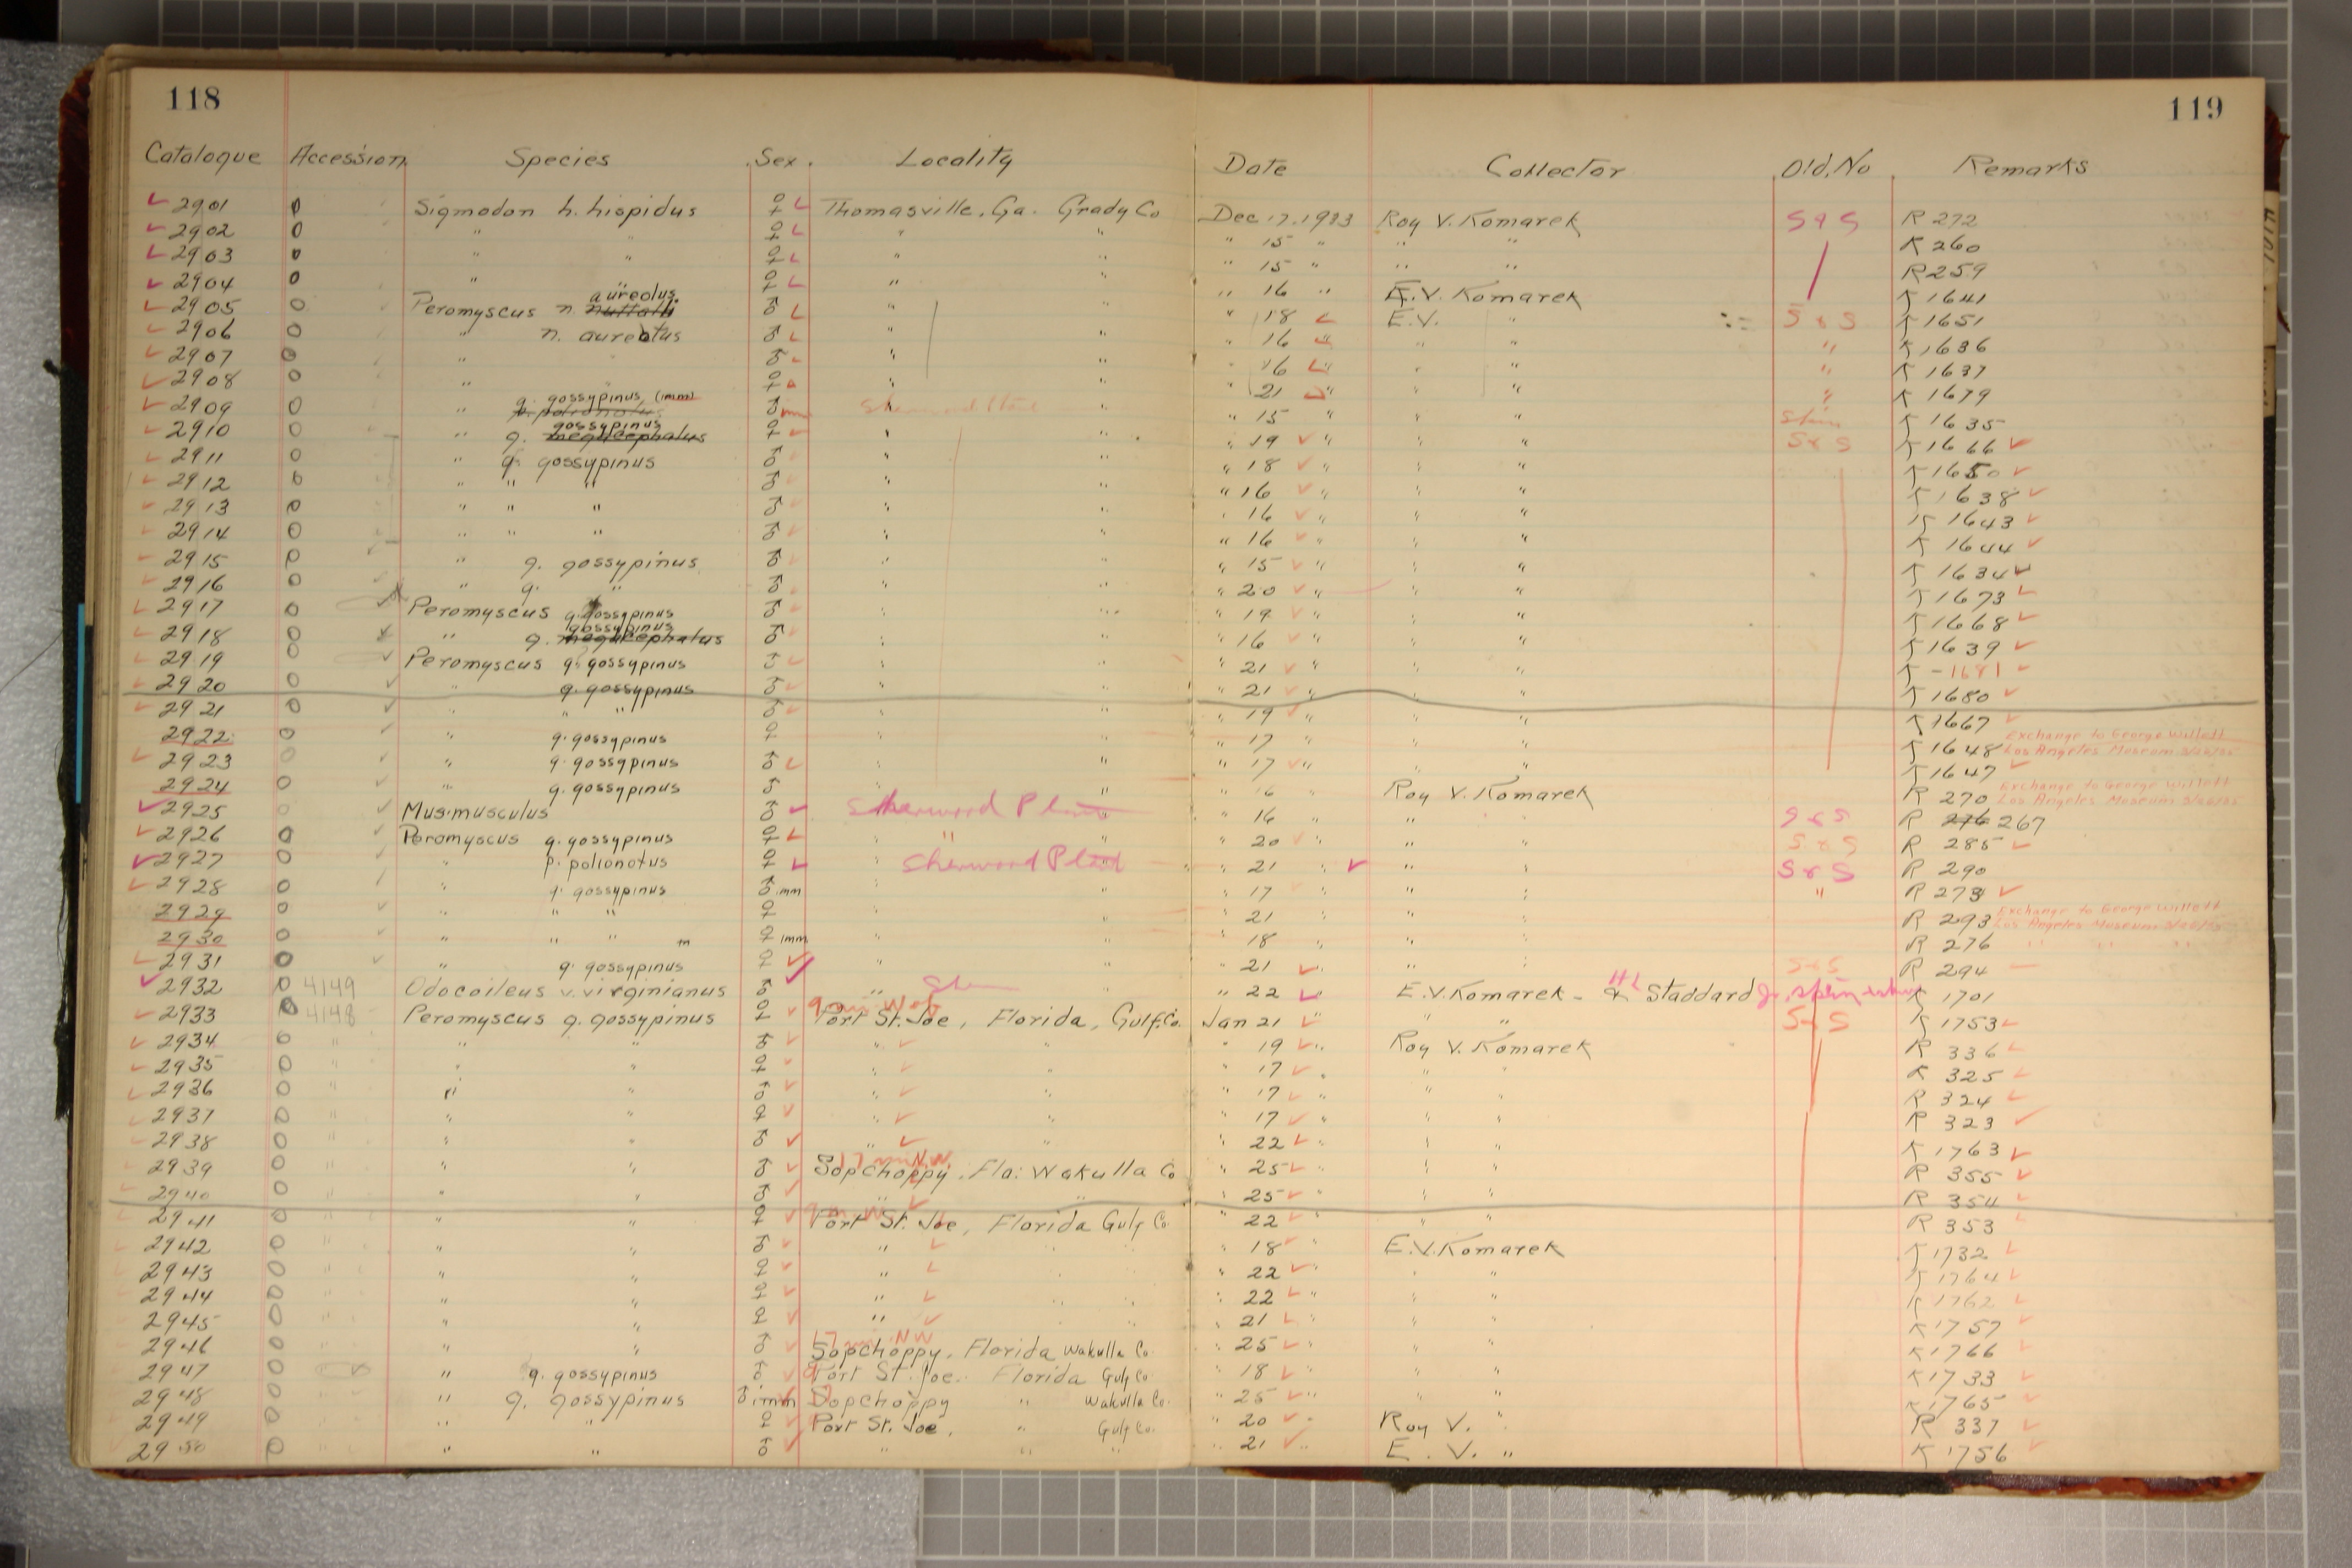 118
119
Catalogue Accession Species Sex. Locality Date Collector Old.No Remarks
2901 0 Sigmodon h. hispidus ♀ Thomasville, Ga. Grady Co Dec 17, 1933 Roy V. Komarek S & S R 272
2902 0 " " ♀ " " " 15 " " " R 260
2903 0 " " ♀ " " " 15 " " " R 259
2904 0 " " ♀ " " " 16 " E.V. Komarek K 1641
2905 0 Peromyscus n. nuttalli aureolus ♂ " " " 18 E.V. " S & S K 1651
2906 0 " n. aureolus ♂ " " " 16 " " " " K 1636
2907 0 " ♂ " " " 16 " " " " K 1637
2908 0 " ♀ " " " 21 " " " " K 1679
2909 0 " g. gossypinus (imm) ♂ imm " " 15 " " " K 1635
2910 0 " g. megacephalus gossypinus ♀ " " " 19 " " " S & S K 1666
2911 0 " g. gossypinus ♂ " " " 18 " " " K 1650
2912 0 " " " ♂ " " " 16 " " " K 1638
2913 0 " " " ♂ " " " 16 " " " K 1643
2914 0 " " " ♂ " " " 16 " " " K 1644
2915 0 " g. gossypinus ♂ " " " 15 " " " K 1634
2916 0 " g. " ♂ " " " 20 " " " K 1673
2917 0 Peromyscus g. gossypinus ♂ " " " 19 " " " K 1668
2918 0 " g. megacephalus gossypinus ♂ " " " 16 " " " K 1639
2919 0 Peromyscus g. gossypinus ♂ " " " 21 " " " K - 1681
2920 0 " g. gossypinus ♂ " " " 21 " " " K 1680
2921 0 " " " ♂ " " " 19 " " " K 1667
2922 0 " g. gossypinus ♀ " " " 17 " " " K 1648 Exchange to George Willett Los Angeles Museum
2923 0 " g. gossypinus ♂ " " " 17 " " " K 1647
2924 0 " g. gossypinus ♂ " " " 16 " Roy V. Komarek R 270 Exchange to George Willett Los Angeles Museum
2925 0 Mus. musculus ♂ Sherwood " " 16 " " " S & S R 276 267
2926 0 Peromyscus g. gossypinus ♀ " " " 20 " " " S & S R 285
2927 0 " p. polionotus ♀ Sherwood " " 21 " " " S & S R 290
2928 0 " g. gossypinus ♂ imm " " " 17 " " " " R 273
2929 0 " " " ♀ " " " 21 " " " R 293 Exchange to George Willett Los Angeles Museum
2930 0 " " " ♀ imm " " " 18 " " " R 276 " " "
2931 0 " g. gossypinus ♀ " " " 21 " " " S & S R 294
2932 0 4149 Odocoileus v. virginianus ♂ " " " 22 " E.V. Komarek - & H L Staddard Jr. K 1701
2933 0 4148 Peromyscus g. gossypinus ♀ Port St. Joe, Florida, Gulf Co. Jan 21 " " " S & S K 1753
2934 0 " " " ♂ " " " 19 " Roy V. Komarek R 336
2935 0 " " " ♀ " " " 17 " " " R 325
2936 0 " " " ♂ " " " 17 " " " R 324
2937 0 " " " ♀ " " " 17 " " " R 323
2938 0 " " " ♂ " " " 22 " " " K 1763
2939 0 " " " ♂ 17 mi NW Sopchoppy, Fla. Wakulla Co " 25 " " " R 355
2940 0 " " " ♂ " " " 25 " " " R 354
2941 0 " " " ♀ Port St. Joe, Florida Gulf Co. " 22 " " " R 353
2942 0 " " " ♂ " " " " 18 " E.V. Komarek K 1732
2943 0 " " " ♀ " " " " 22 " " " K 1764
2944 0 " " " ♀ " " " " 22 " " " K 1762
2945 0 " " " ♀ " " " " 21 " " " K 1757
2946 0 " " " ♂ 17 mi. NW Sopchoppy, Florida Wakulla Co. " 25 " " " K 1766
2947 0 " g. gossypinus ♂ Port St. Joe. Florida Gulf Co. " 18 " " " K 1733
2948 0 " g. gossypinus ♂ imm Sopchoppy " Wakulla Co. " 25 " " " K 1765
2949 0 " " ♀ Port St. Joe, " Gulf Co. " 20 " Roy V. " R 337
2950 0 " " ♂ " " " " 21 " E. V. " K 1756